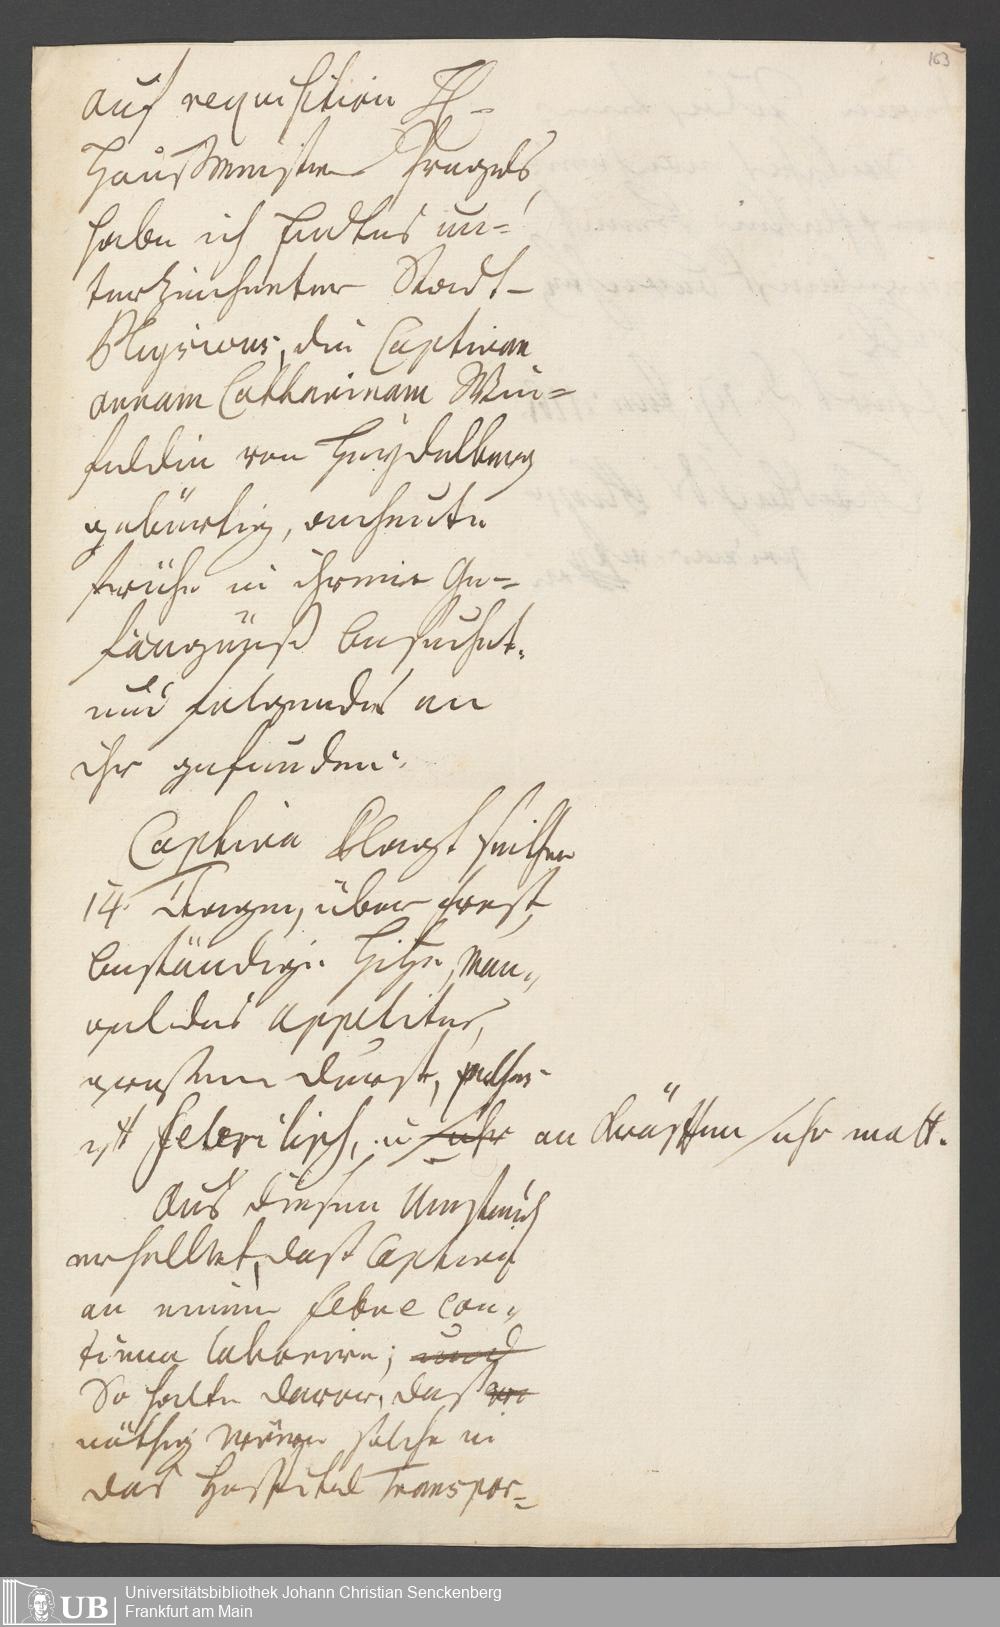 163
auf requisition H.
Haußmeister Preqels
habe ich Endtes un=
terzeichneter Stadt-
Physicus, die Captivam
annam Catharinam Wein=
feldin von Heydelberg
gebürtig, anheute
frühe in ihrem Ge=
fängnüß besuchet.
und folgendes an
ihr gefunden.
Captiva klagt seither
14. Tagen, über frost,
beständige Hitze, Man„
gel des appetites,
großem Durst, pulsus
ist febrilisch, u sehr an Kräfften sehr matt.
Aus diesen Umständ
erhellet, daß Captiva
an einem febre con„
tinua laborire; und
So halte davor, daß
nöthig seye solche in
das Hospital Transpor=
UB
Universitätsbibliothek Johann Christian Senckenberg
Frankfurt am Main